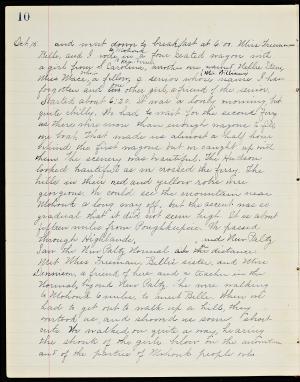 10
Oct. 15 and went down to breakfast at 6.00. Miss Freeman
Belle, and I rode in a four seated wagon with
to Mohonk
a girl from S. Carolina, another one named Nellie
Miss Ware, a fellow, a senior whose name I have
(Miss Williams)
forgotten and four other girls, a friend of the senior.
Started about 6:20. It was a lovely morning, but
quite chilly. We had to wait for the second ferry
as there were more than enough wagons to fill
one boat. That made us almost a half hour
behind the first wagons but we caught up with
them. The scenery was beautiful. The Hudson
looked beautiful as we crossed the ferry. The
hills in their red and yellow robes were
gorgeous. We could see the mountain near
Mohonk a long way off, but the ascent was so
gradual that it did not seem high. It is about
fifteen miles from Poughkeepsie. We passed
through Highlands, and New Paltz.
Saw the New Paltz Normal in the distance.
Met Miss Freeman, Belle's sister, and Miss
Dennison, a friend of hers and a teacher in the
Normal, beyond New Paltz. They were walking
to Mohonk 6 miles, to meet Belle. When we
had to get out to walk up a hill, they
overtook us, and showed us some "short
cuts." We walked on quite a way, hearing
the shouts of the girls below on the mountain
out of the parties of Mohonk people who